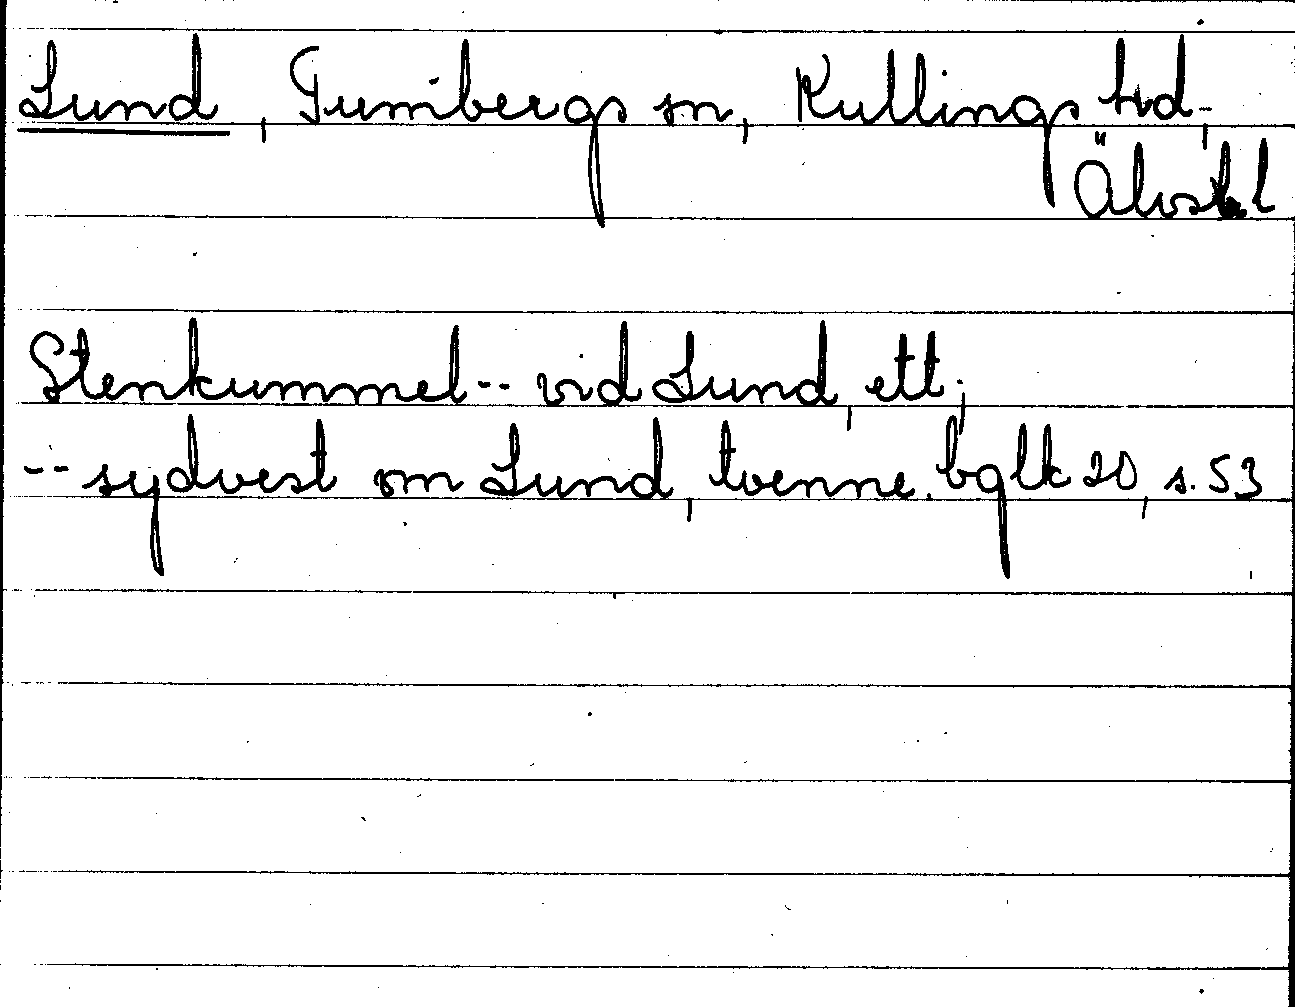 Lund, Tumbergs sn, Kullings hd,
Älvsb.l
Stenkummel -- vid Lund, ett;
-- sydvest om Lund, tvenne. bglk 20, s. 53